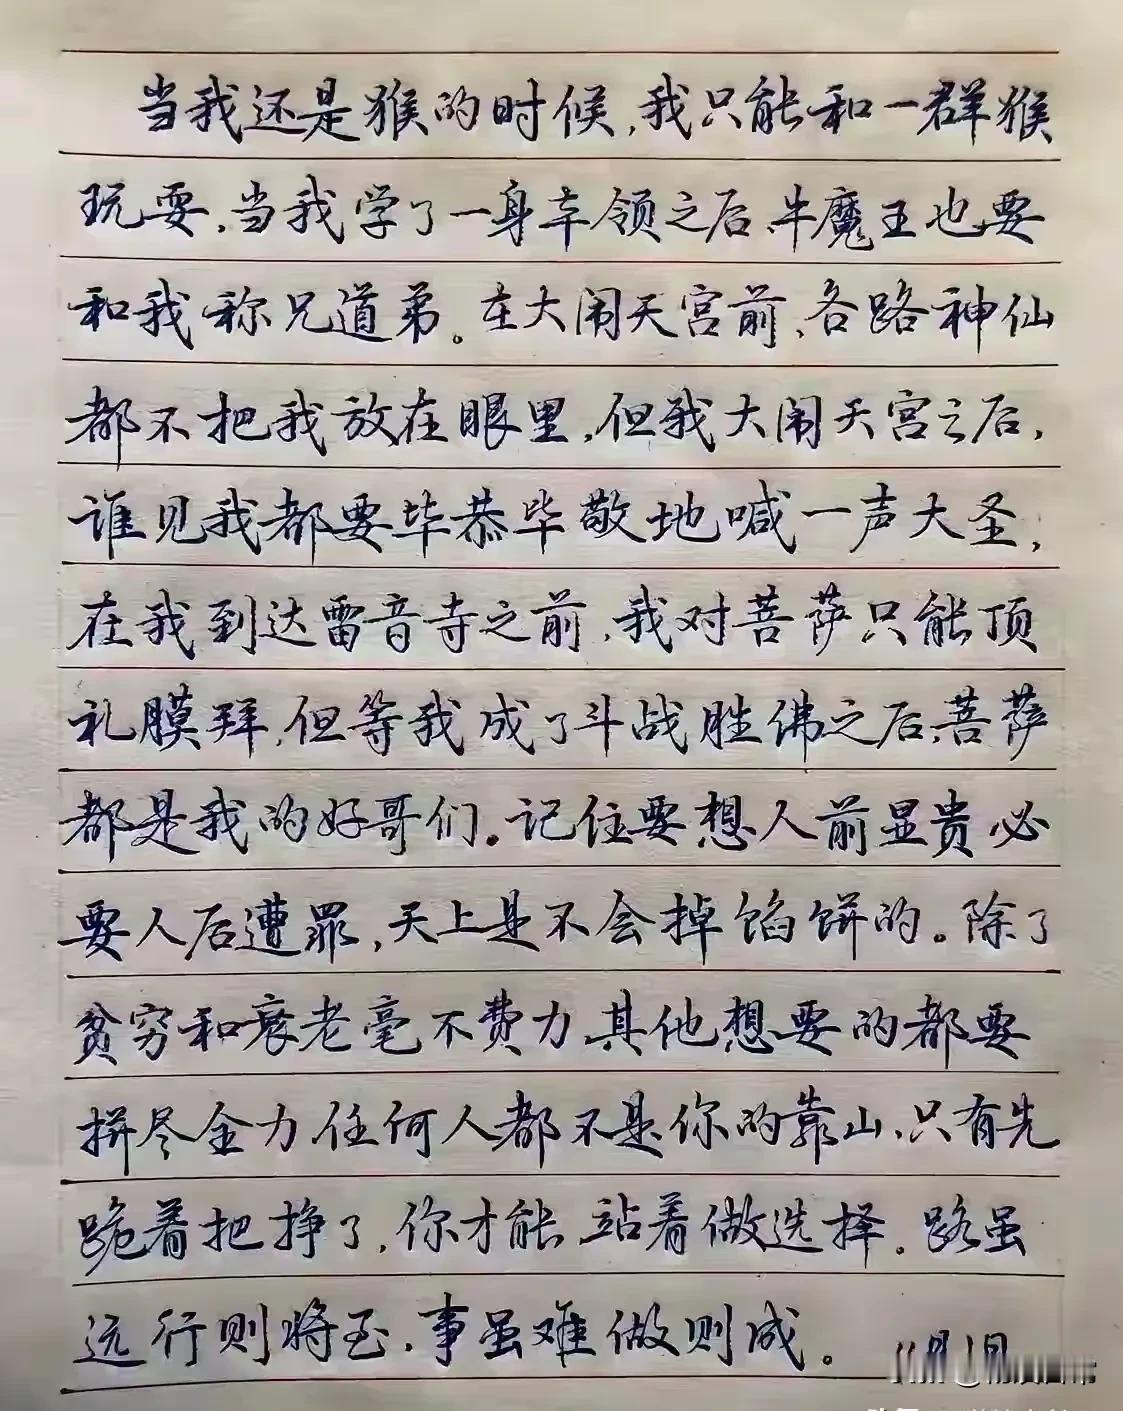 当我还是猴的时候，我只能和一群猴
玩耍，当我学了一身本领之后，牛魔王也要
和我称兄道弟。在大闹天宫前，各路神仙
都不把我放在眼里，但我大闹天宫之后，
谁见我都要毕恭毕敬地喊一声大圣，
在我到达雷音寺之前，我对菩萨只能顶
礼膜拜，但等我成了斗战胜佛之后，菩萨
都是我的好哥们。记住要想人前显贵必
要人后遭罪，天上是不会掉馅饼的。除了
贫穷和衰老毫不费力，其他想要的都要
拼尽全力任何人都不是你的靠山，只有先
跪着把挣了，你才能站着做选择。路虽
远行则将至，事虽难做则成。